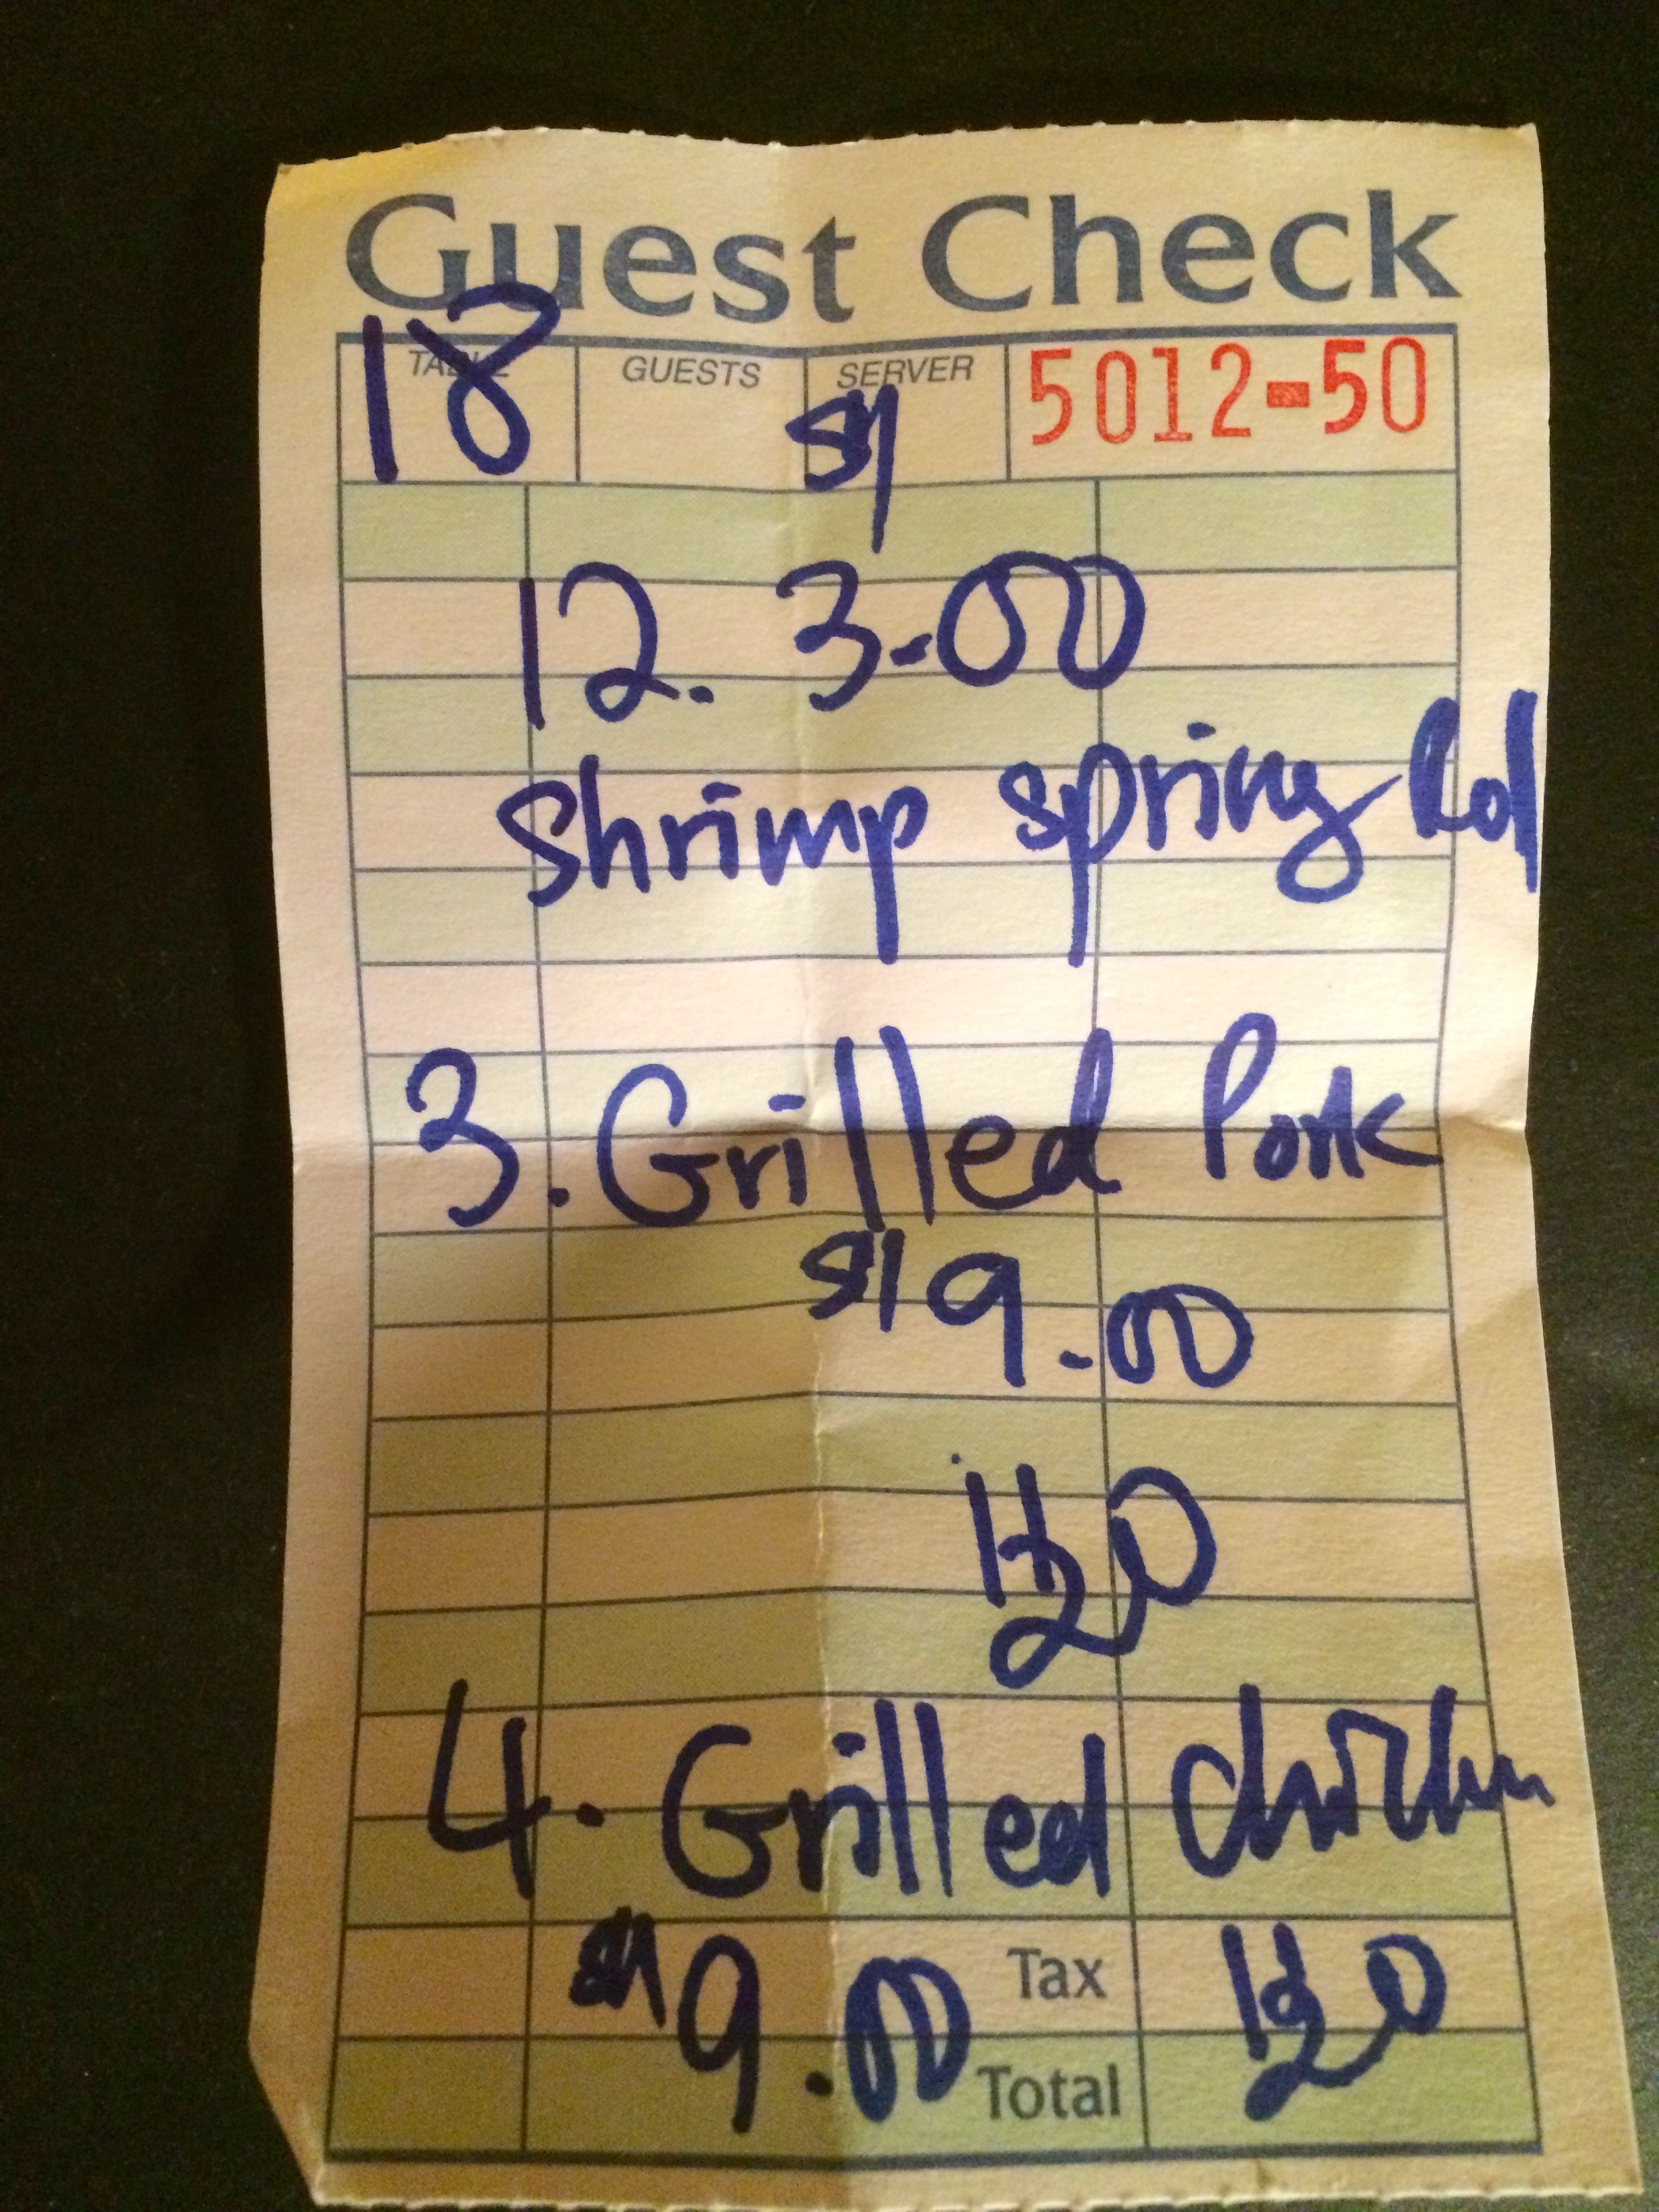 Guest Check
TABLE GUESTS SERVER 5012-50
18
12. 3.00
Shrimp spring Rol
3. Grilled Pork
9.00
H2O
4. Grilled chicken
9.00 Tax H2O
Total